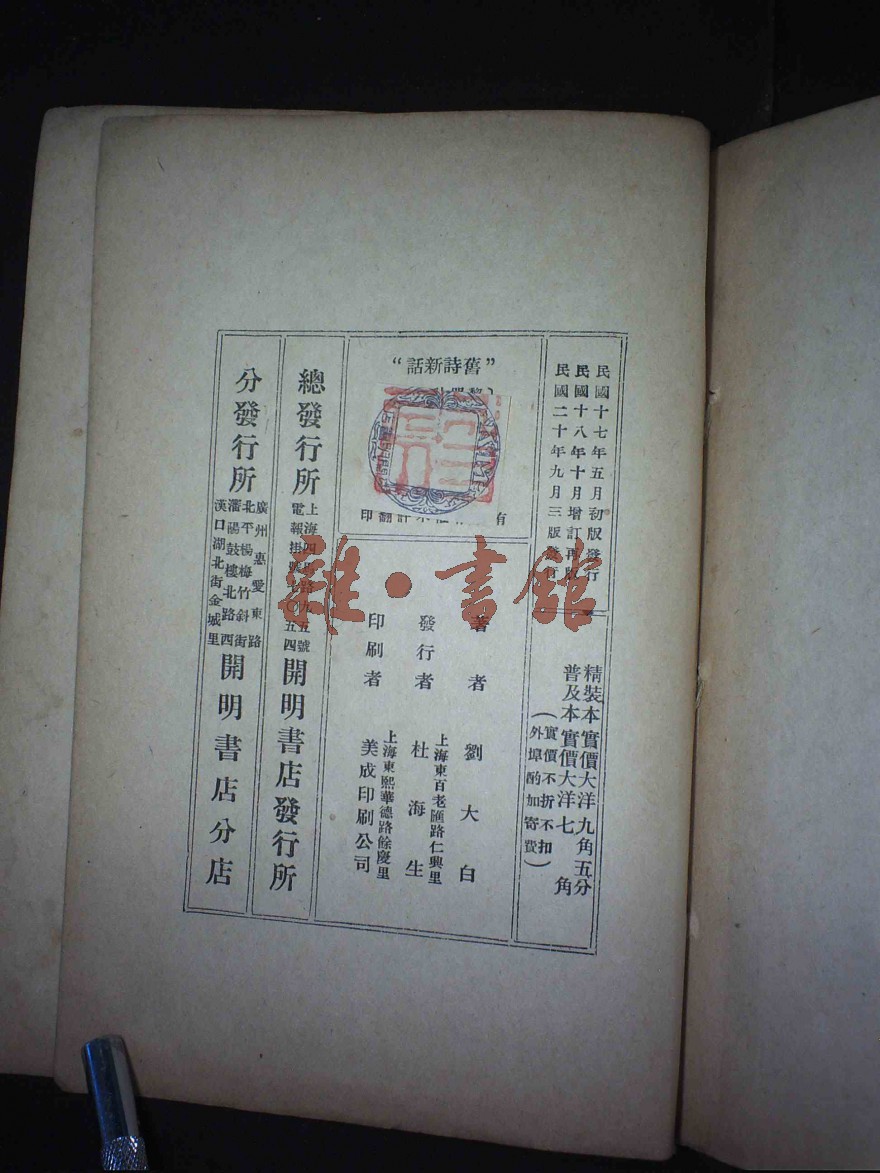 民國十七年五月初版發行
民國十八年十月增訂再版
民國二十年九月三版發行
精裝本實價大洋九角五分
普及本實價大洋七角
（實價不折不扣
外埠酌加寄費）
“舊詩新話”
有
許翻印
著者 劉大白
發行者 杜海生
上海東百老匯路仁興里
印刷者 美成印刷公司
上海東熙華德路餘慶里
總發行所
上海四
路九五號
電報掛號七〇五四
開明書店發行所
分發行所
廣州惠愛東路
北平楊梅竹斜街
瀋陽鼓樓北路西
漢口湖北街金城里
開明書店分店
雜·書館